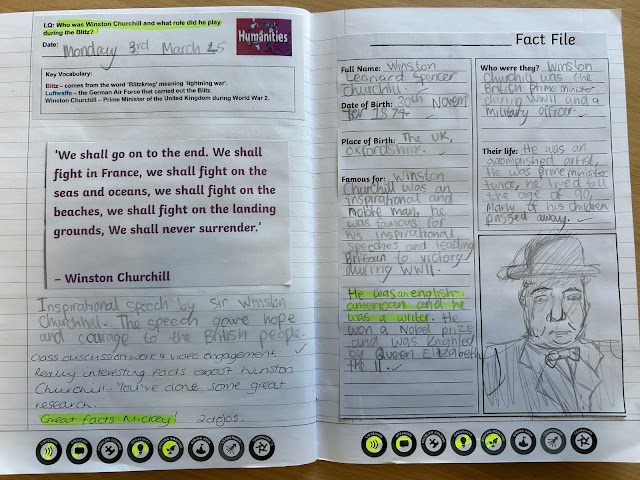 LQ: Who was Winston Churchill and what role did he play
during the Blitz?
Date: Monday 3rd March 25
Humanities
Key Vocabulary:
Blitz – comes from the word 'Blitzkrieg' meaning 'lightning war'.
Luftwaffe – the German Air Force that carried out the Blitz.
Winston Churchill – Prime Minister of the United Kingdom during World War 2.
'We shall go on to the end. We shall
fight in France, we shall fight on the
seas and oceans, we shall fight on the
beaches, we shall fight on the landing
grounds, We shall never surrender.'
– Winston Churchill
Inspirational speech by Sir Winston
Churchhil. The speech gave hope
and courage to the British people.
Class discussion work & video engagement.
Really interesting facts about Winston
Churchill - You've done some great
research.
Great facts Mickey! 2dojos.
Fact File
Full Name: Winston
Leanard Spencer
Churchill.
Date of Birth: 30th Novem
ber 1874
Place of Birth: The UK,
Oxfordshire.
Famous for: Winston
Churchill was an
inspirational and
noble man, he
was famous for
his inspirational
speeches and leading
Britain to victory
during WWII.
He was an english-
american and he
was a writer. He
won a Nobel prize
and was knighted
by Queen Elizabeth
the II.
Who were they? Winston
Churchill was the
British prime minister
during WWII and a
military officer.
Their life: He was an
accomplished artist,
He was prime minister
twice, he lived till
the age of 90.
Many of his children
passed away.